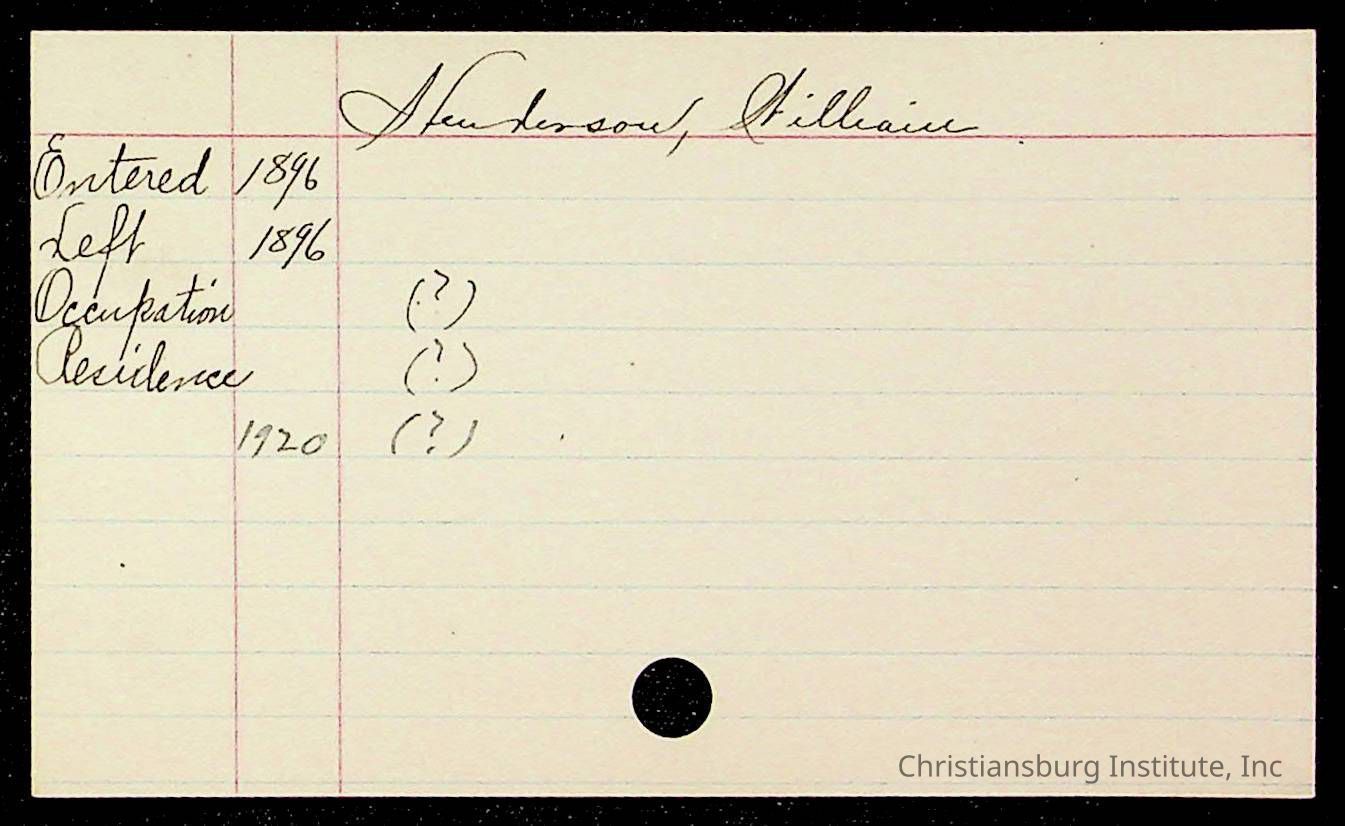 Henderson, William
Entered 1896
Left 1896
Occupation (?)
Residence (?)
1920 (?)
Christiansburg Institute, Inc